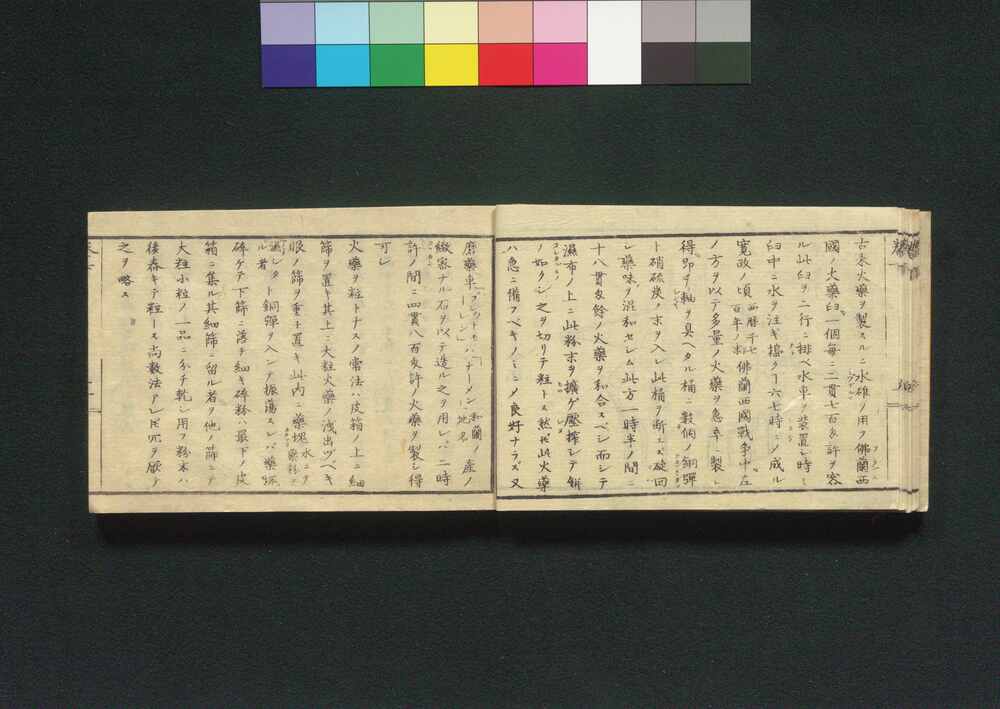 古来火藥ヲ製スルニ水碓ノ用ヲ佛蘭西
國ノ火藥臼一個毎ニ二貫七百目許ヲ容
ル此臼ヲ二行ニ排ベ水車ヲ装置シ時々
臼中ニ水ヲ注ギ搗クヿ六七時ニノ成ル
寛政ノ頃西暦千七百年ノ末佛蘭西國戰争中左
ノ方ヲ以テ多量ノ火藥ヲ急卒ニ製シ
得タリ即チ軸ヲ具ヘタル桶ニ數個ノ銅彈
ト硝硫炭ノ末ヲ入レ此桶ヲ断エズ旋回
シ藥味ヲノ混和セシム此方一時半ノ間ニ
十八貫目餘ノ火藥ヲ和合スベシ而シテ
濕布ノ上ニ此粉末ヲ擴ゲ壓搾シテ餅
ノ如クシ之ヲ切リテ粒トス然ㇾ𪜈此火導
ハ急ニ備フベキノミニノ良好ナラズ又
磨藥車「プレットモーレン」ハ「ナーメン」和蘭ノ地名ニ産ノ
緻密ナル石ヲ以テ造ル之ヲ用レバ二時
許ノ間ニ四貫八百目許ノ火藥ヲ製シ得
可シ
火藥ヲ粒トナスノ常法ハ皮箱ノ上ニ細
篩ヲ置キ其上ニ大粒火藥ノ洩出ヅベキ
眼ノ篩ヲ重ネ置キ此内ニ藥塊水ニテ藥粉ヲ
濕シタル者ト銅彈ヲ入レテ振蕩スレバ藥塊
碎ケテ下篩ニ落チ細キ碎粉ハ最下ノ皮
箱ニ集ル其細篩ニ留ル者ヲ他ノ篩ニテ
大粒小粒ノ二品ニ分チ乾シ用フ粉末ハ
後舂キテ粒トス尚數法アレ𪜈冗ヲ厭テ
之ヲ略ス